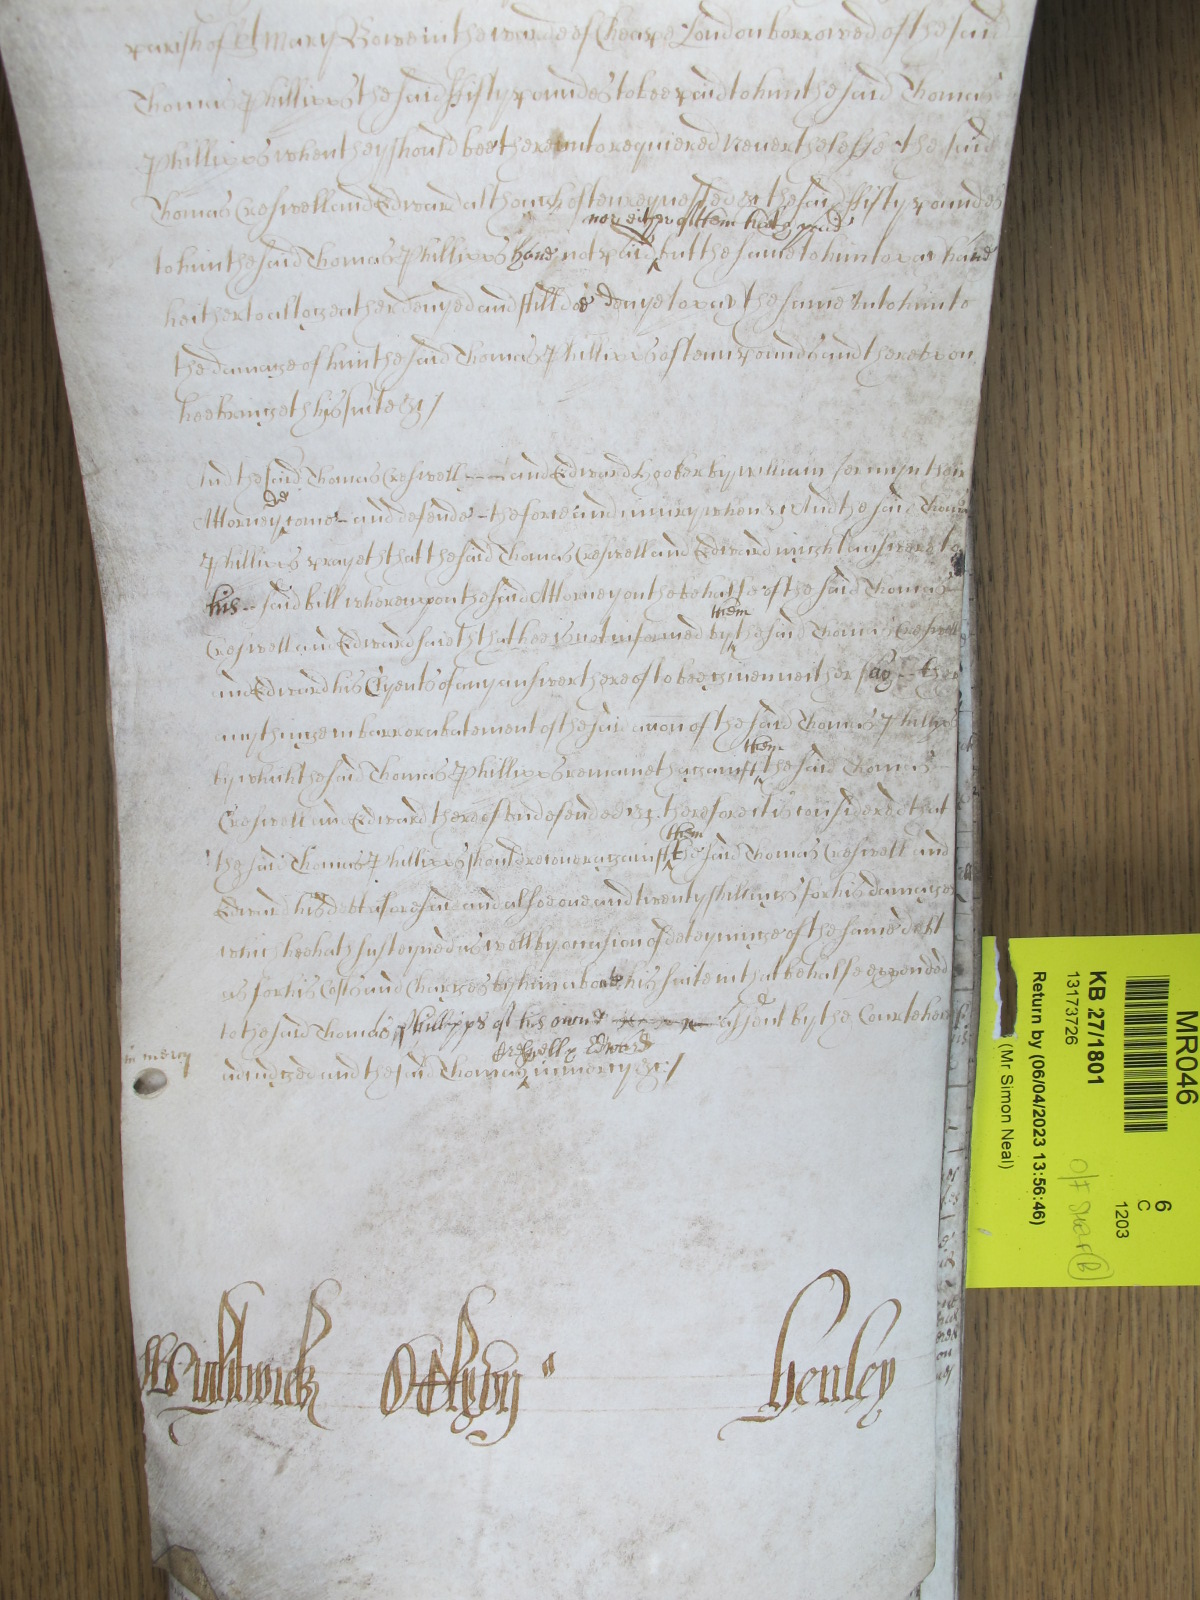 parish of St Mary Bowe in the warde of Cheape London borrowed of the said
Thomas Phillipps the said ffifty poundes to bee paid to him the said Thomas
Phillipps when they should bee thereunto requiered Neverthelesse the said
Thomas Creswell and Edward although often requested &c the said ffifty poundes
nor either of them hath paid
to him the said Thomas Phillipps have not paid but the same to him to pay have
heitherto altogeather denyed and still doe denye to pay the same unto him to
the damage of him the said Thomas Phillipps of tenn pounds and thereupon
hee bringeth his suite &c /
And the said Thomas Creswell --- and Edward Hooker by William Jermyn their
Attorney come - and defende - the force and iniury when &c And the said Thomas
Phillipps prayeth that the said Thomas Creswell and Edward might answere to
his -- said bill whereupon the said Attorney on the behalfe of the said Thomas
them
Creswell and Edward saieth that hee is not informed by the said Thomas Creswell
and Edward his Clyents of any answer thereof to bee given neither say -- the
any thinge in barr or abatement of the said accion of the said Thomas Phillipps
them
by which the said Thomas Phillipps remaineth against the said Thomas
Creswell and Edward thereof undefended &c therefore it is considered that
them
the said Thomas Phillipps should recover against the said Thomas Creswell and
Edward his debt aforesaid and alsoe one and twenty shillings for his damages
which hee hath susteyned as well by occasion of deteyninge of the same debt
as for his Costs and Charges by him about his suite in that behalfe expended
to the said Thomas Phillipps of his owne assent by the Court here
Creswell & Edward
in mercy
adiudged and the said Thomas in mercy &c /
Wightwick Oteley
Henley
MR046
6
C
1203
KB 27/1801
13173726
Return by (06/04/2023 13:56:46)
(Mr Simon Neal)
O/F
B